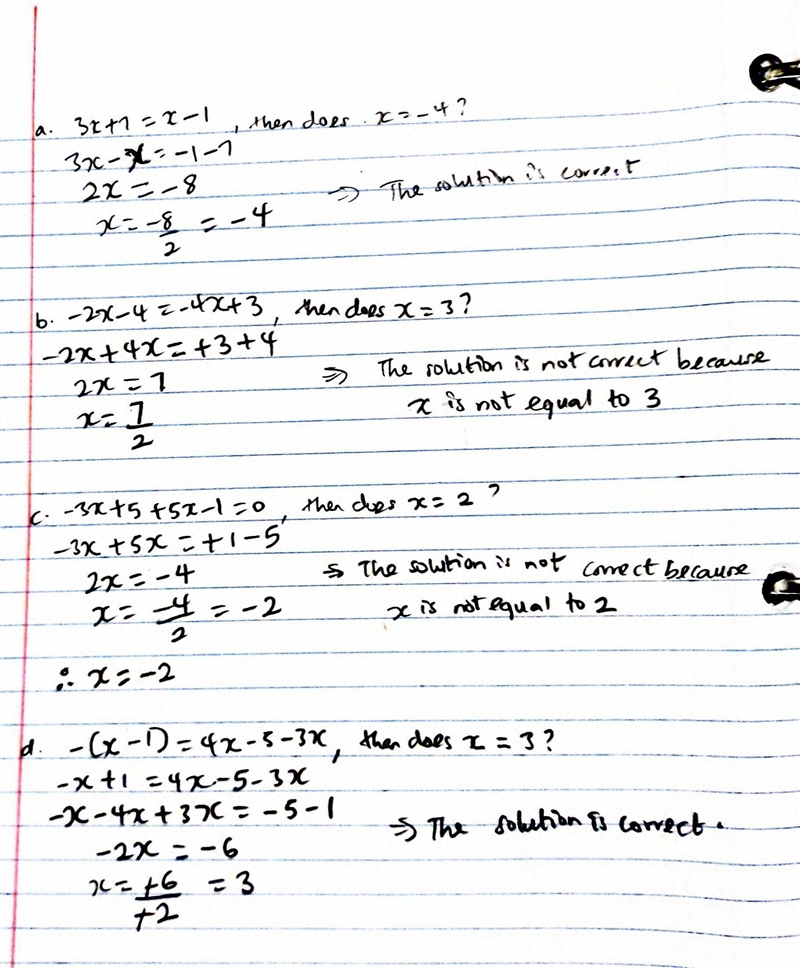 a. 3x+7 = x-1, then does x = -4?
3x-x = -1-7
2x = -8
x = -8/2 = -4
⇒ The solution is correct
b. -2x-4 = -4x+3, then does x = 3?
-2x+4x = +3+4
2x = 7
x = 7/2
⇒ The solution is not correct because
x is not equal to 3
c. -3x+5+5x-1=0, then does x = 2?
-3x+5x = +1-5
2x = -4
x = -4/2 = -2
⇒ The solution is not correct because
x is not equal to 2
∴ x = -2
d. -(x-1) = 4x-5-3x, then does x = 3?
-x+1 = 4x-5-3x
-x-4x+3x = -5-1
-2x = -6
x = +6/+2 = 3
⇒ The solution is correct.